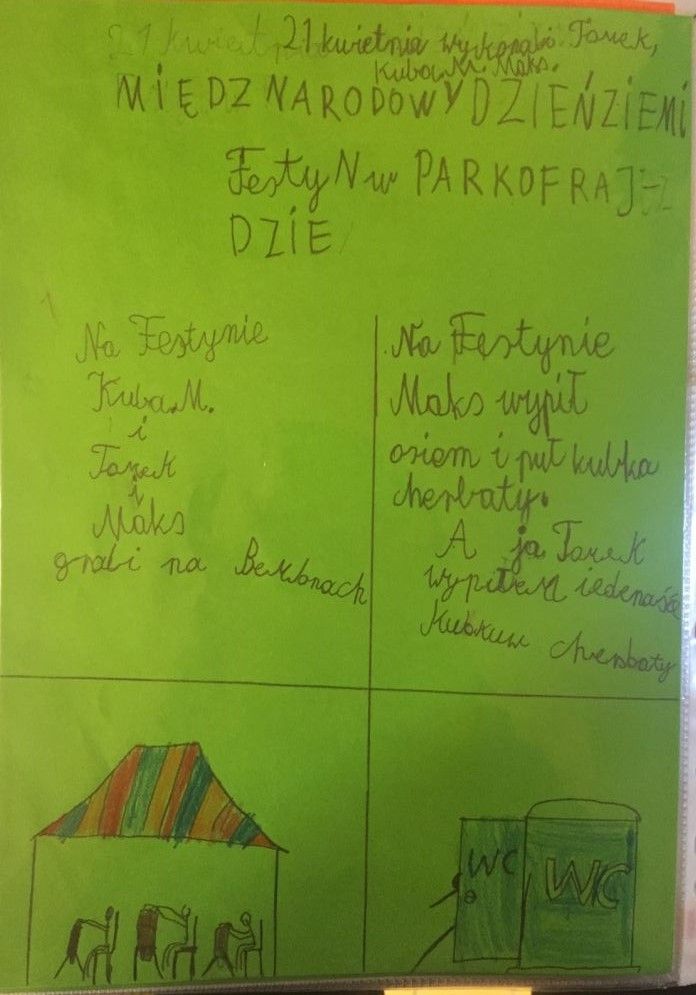 21 kwiet 21 kwietnia wykonali Tarek,
Kuba.M. Maks.
MIĘDZNARODOWY DZIEŃZIEMI
FestyN w PARKOFRAJ-
DZIE
Na Festynie
Kuba.M.
i
Tarek
i
Maks
grali na Bembnach
Na Festynie
Maks wypił
osiem i puł kubka
cherbaty.
A ja Tarek
wypiłem iedenaśce
Kubkuw cherbaty
WC
WC